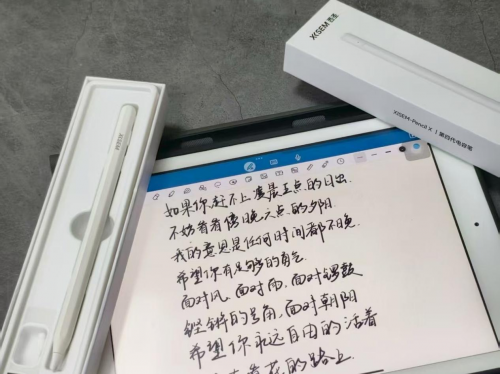 XISEM 西圣
XISEM-Pencil X | 第四代电容笔
XISEM
如果你赶不上凌晨五点的日出
不妨看看傍晚六点的夕阳
我的意思是任何时间都不晚
希望你有足够的勇气
面对风、面对雨、面对锣鼓
铿锵的号角、面对朝阳
希望你永远自由的活着
花的路上